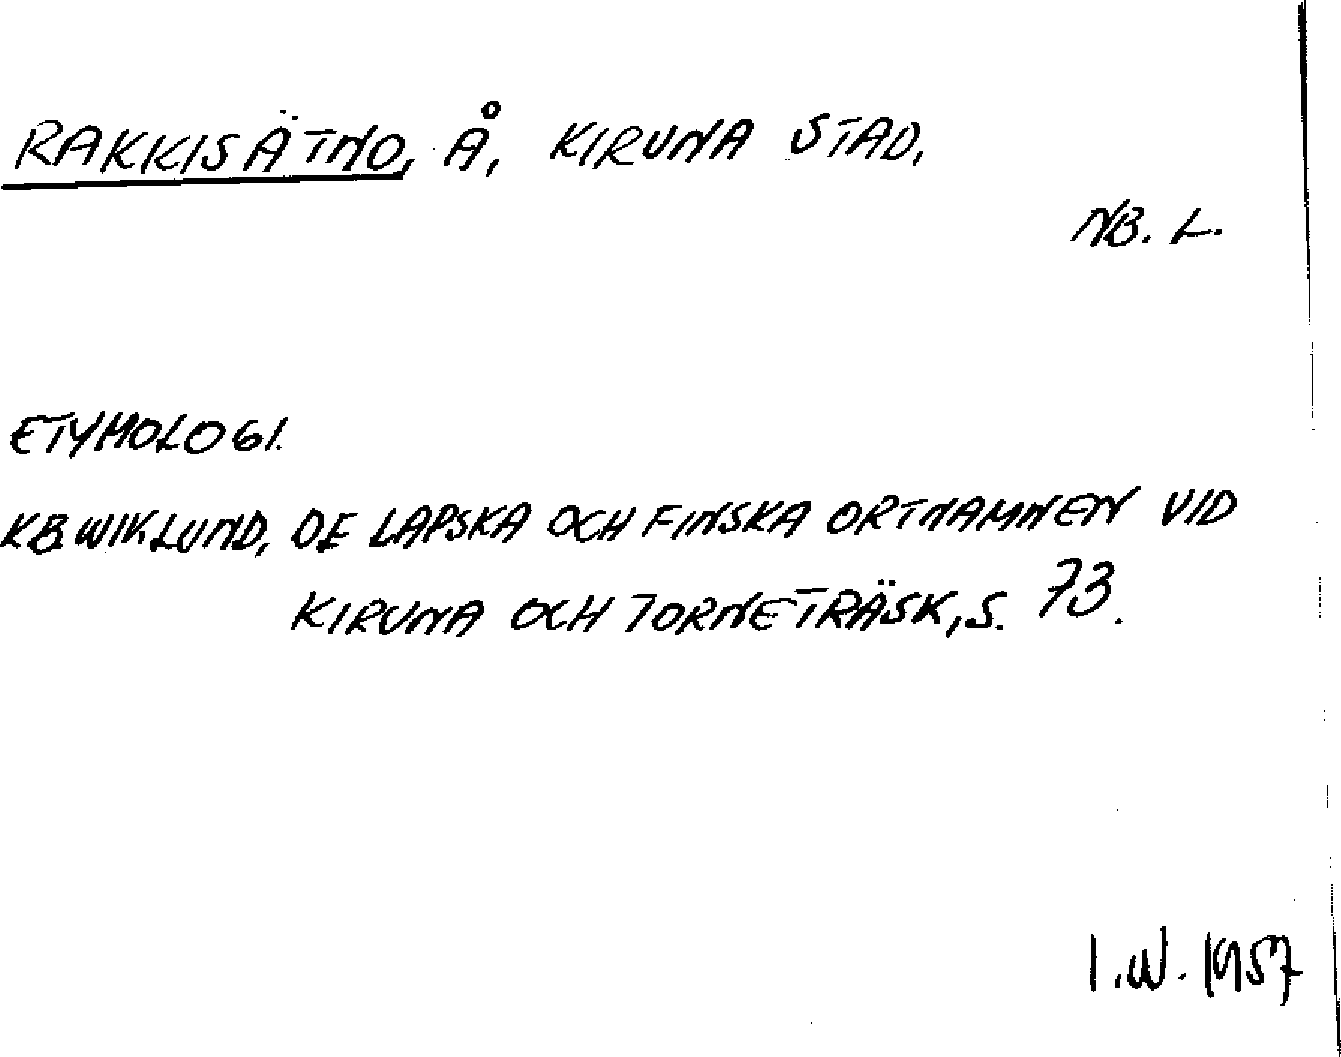 RAKKISÄTNO, Å, KIRUNA STAD.
NB. L.
ETYMOLOGI.
KB WIKLUND, DE LAPSKA OCH FINSKA ORTNAMNEN VID
KIRUNA OCH TORNETRÄSK, S. 73.
I.W. 1957